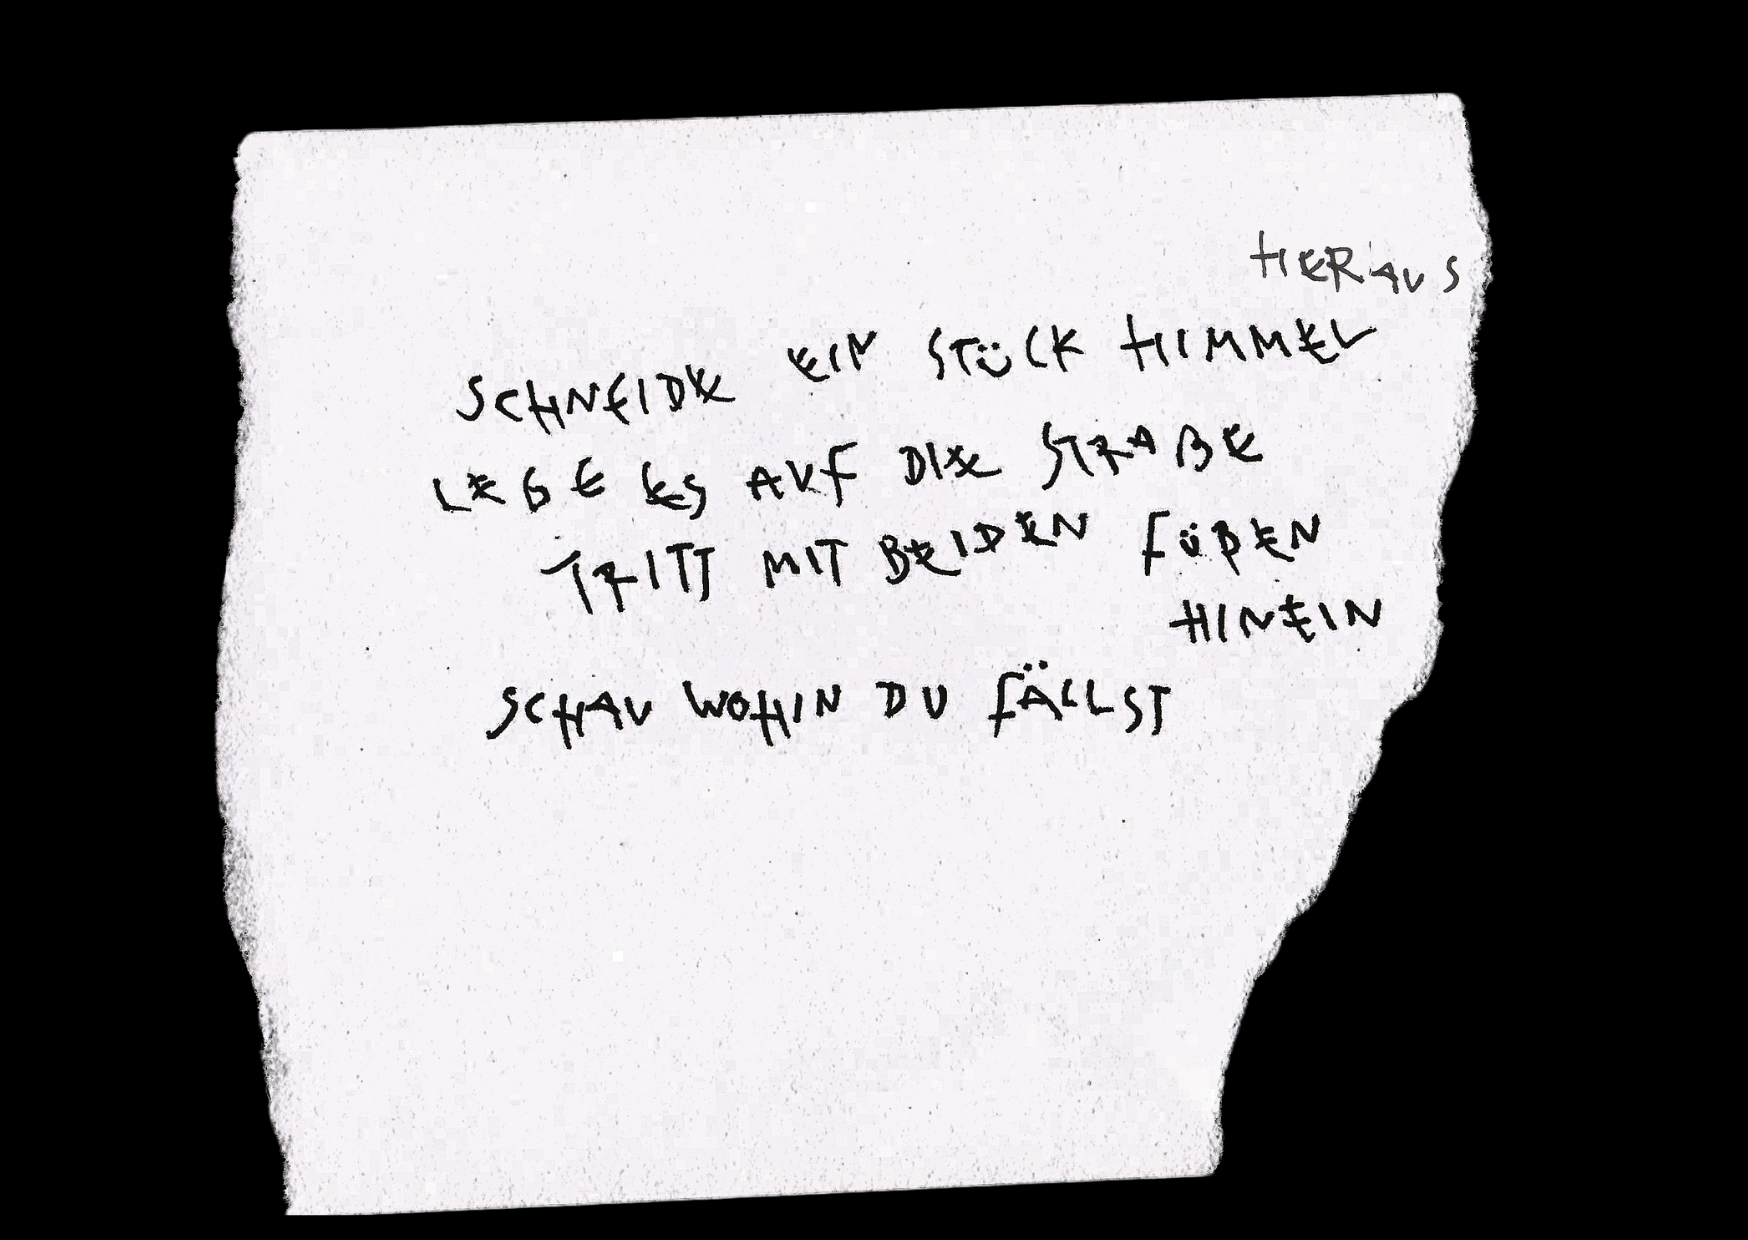 HERAUS
SCHNEIDE EIN STÜCK HIMMEL
LEGE ES AUF DIE STRAßE
TRITT MIT BEIDEN FÜßEN
HINEIN
SCHAU WOHIN DU FÄLLST